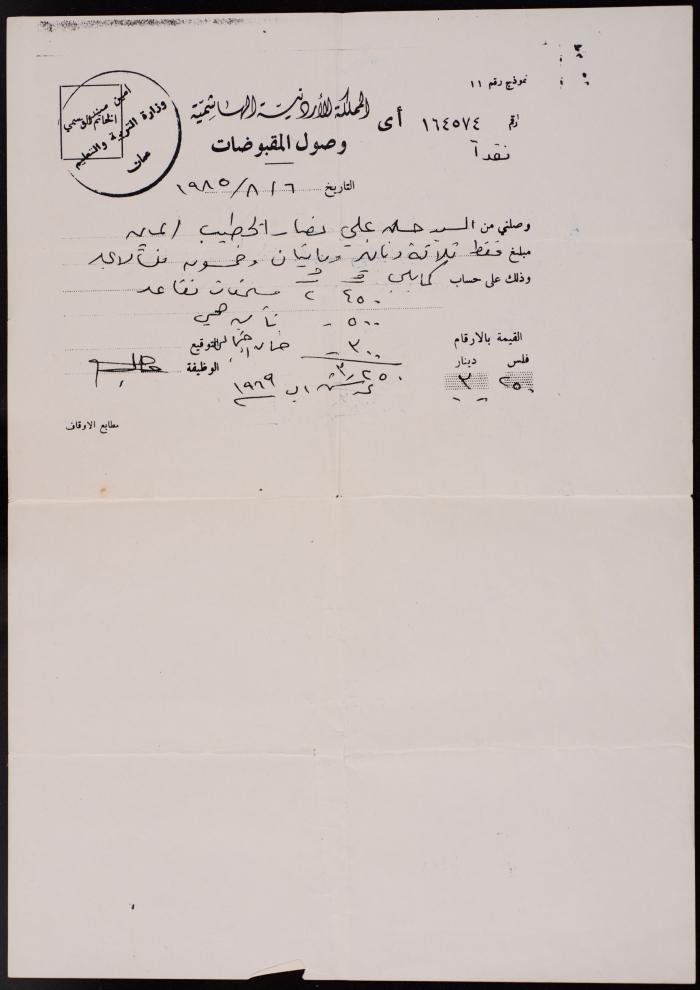 نموذج رقم ١١
المملكة الأردنية الهاشمية
رقم ١٦٤٥٧٤ أى
وصول المقبوضات
نقداً
أمين صندوق
وزارة التربية والتعليم
عمان
التاريخ ٦ / ٨ / ١٩٨٥
وصلني من السيد حسن علي نصار الخطيب / عمان
مبلغ فقط ثلاثة دنانير ومائتان وخمسون فلساً لا غير
وذلك على حساب كما يلي
٤٥٠ ر ٢ مستحقات تقاعد
٥٠٠ ر
القيمة بالارقام
٣٠٠ ر ضمان اجتماعي
التوقيع
فلس دينار
الوظيفة
٢٥٠ ٣
٣٫٢٥٠
١٩٦٩
مطابع الاوقاف